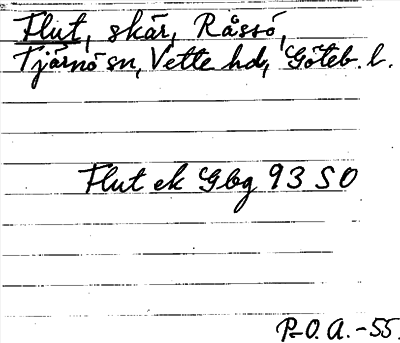 Flut, skär, Råssö,
Tjärnö sn, Vette hd, Göteb. l.
Flut ek Gbg 93 SO
P-O. A. -55.